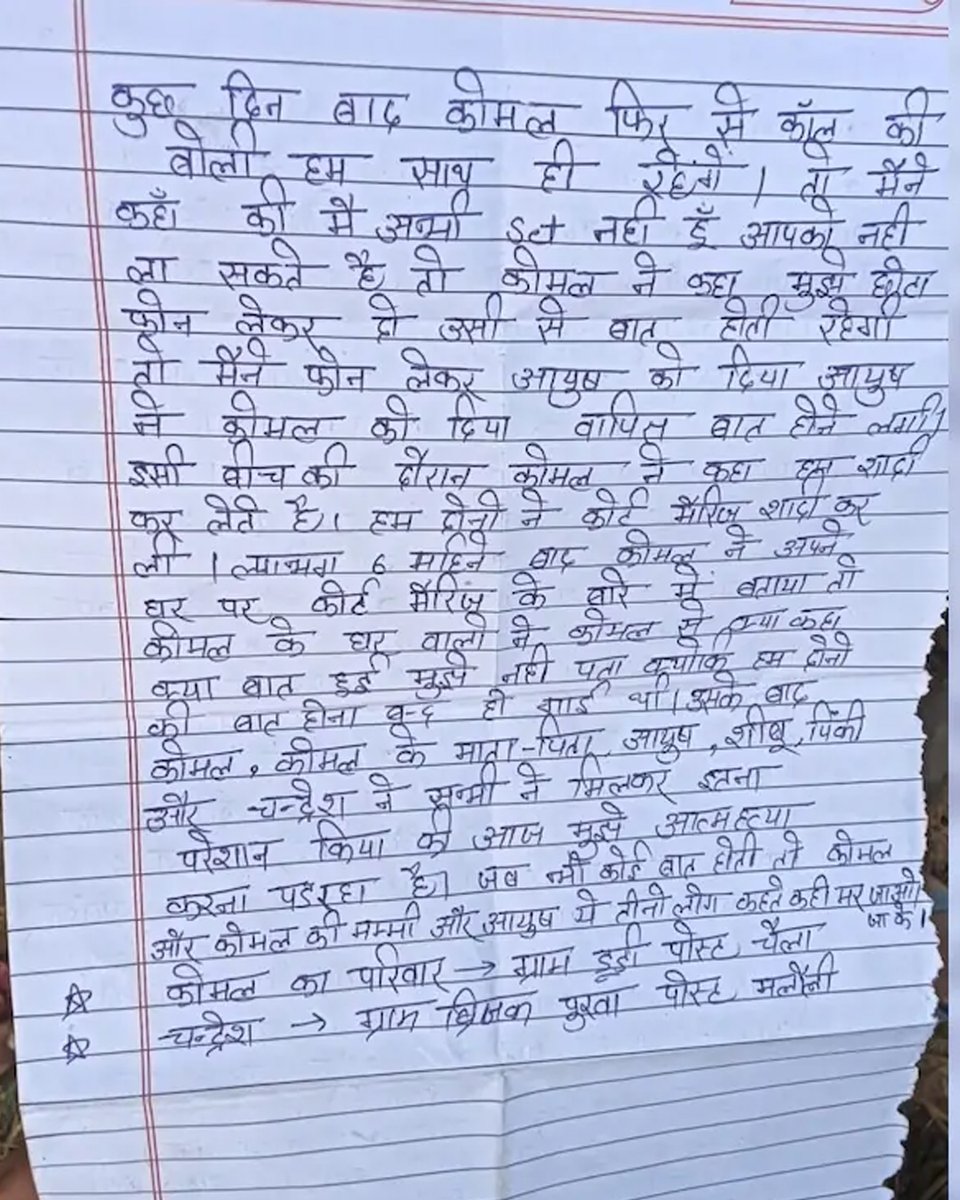 कुछ दिन बाद कोमल फिर से कॉल की
बोली हम साथ ही रहेंगे । तो मैने
कहाँ की मै अभी set नही हूँ आपको नही
ला सकते है तो कोमल ने कहा मुझे छोटा
फोन लेकर दो उसी से बात होती रहेगी
तो मैने फोन लेकर आयुष को दिया आयुष
ने कोमल को दिया वापिस बात होने लगी।
इसी बीच की दौरान कोमल ने कहा हम शादी
कर लेते है। हम दोनो ने कोर्ट मैरिज शादी कर
ली । लगभग 6 महिने बाद कोमल ने अपने
घर पर कोर्ट मैरिज के बारे में बताया तो
कोमल के घर वालो ने कोमल से क्या कहा
क्या बात हुई मुझे नही पता क्योकि हम दोनो
की बात होना बन्द हो गई थी। उसके बाद
कोमल, कोमल के माता-पिता, आयुष, शीबू, पिंकी
और चन्द्रेश ने सभी ने मिलकर इतना
परेशान किया की आज मुझे आत्महत्या
करना पडरहा है। जब भी कोई बात होती तो कोमल
और कोमल की मम्मी और आयुष ये तीनो लोग कहते कही मर जाओ
जा के।
☆ कोमल का परिवार → ग्राम डूडी पोस्ट चैला
☆ चन्द्रेश → ग्राम पुरवा पोस्ट मलौनी